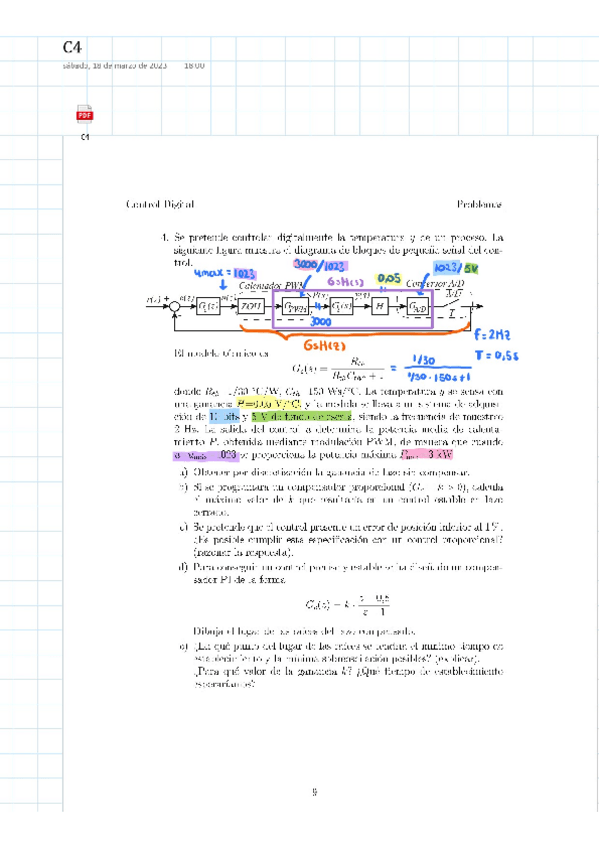 C4
sábado, 18 de marzo de 2023 18:00
PDF
C4
Control Digital Problemas
4. Se pretende controlar digitalmente la temperatura y de un proceso. La
siguiente figura muestra el diagrama de bloques de pequeña señal del con-
trol.
umax = 1023
3000/1023
1023/5V
Calentador PWM
GsH(s)
0,05
Conversor A/D
r(z) + e(z) Gc(z) u(z) ZOH GPWM P(s) G1(s) y(s) H GA/D A/D
-
3000
T
GsH(z)
f=2Hz
T = 0,5s
El modelo térmico es
= 1/30
1/30 · 150s+1
donde Rth 1/30 °C/W, Cth 150 Ws/°C. La temperatura y se sensa con
una ganancia V/°C, y la medida se lleva a un sistema de adquisi-
ción de 10 bits y 5 V de fondo de escala, siendo la frecuencia de muestreo
2 Hz. La salida del control u determina la potencia media de calenta-
miento P, obtenida mediante modulación PWM, de manera que cuando
1023 se proporciona la potencia máxima 3 kW
a) Obtener por discretización la ganancia de lazo sin compensar.
b) Si se programara un compensador proporcional (Gc = k > 0), calcula
el máximo valor de k que resultaría en un control estable en lazo
cerrado.
c) Se pretende que el control presente un error de posición inferior al 1%.
¿Es posible cumplir esta especificación con un control proporcional?
(razonar la respuesta).
d) Para conseguir un control preciso y estable se ha diseñado un compen-
sador PI de la forma
Dibuja el lugar de las raíces del lazo compensado.
e) ¿En qué punto del lugar de las raíces se tendrían el mínimo tiempo de
establecimiento y la mínima sobreoscilación posibles? (explicar).
¿Para qué valor de la ganancia k? ¿Qué tiempo de establecimiento
esperaríamos?
9